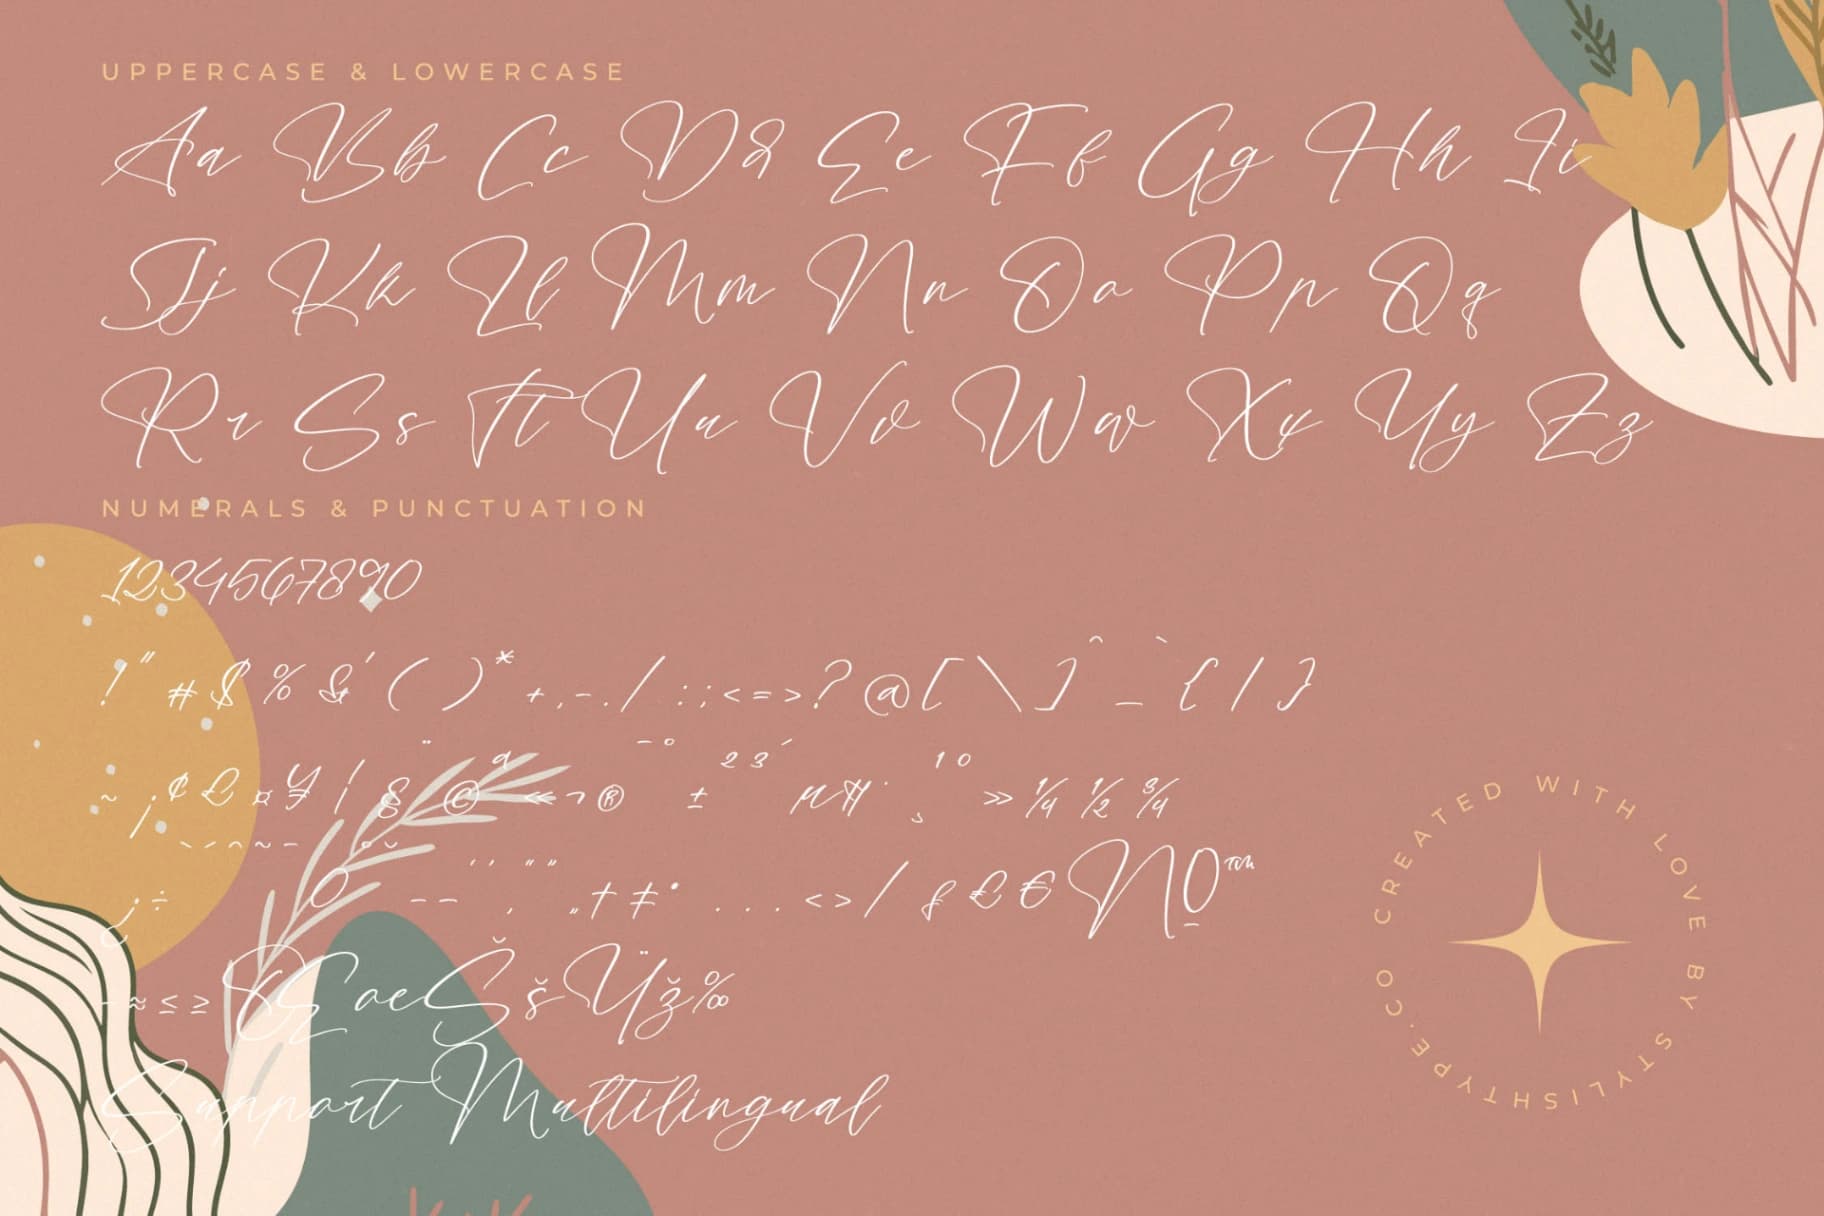 UPPERCASE & LOWERCASE
Aa Bb Cc Dd Ee Ff Gg Hh Ii
Jj Kk Ll Mm Nn Oo Pp Qq
Rr Ss Tt Uu Vv Ww Xx Yy Zz
NUMERALS & PUNCTUATION
1234567890
! " # $ % & ' ( ) * + , - . / : ; < = > ? @ [ \ ] ^ _ ` { | }
~ ¡ ¢ £ ¤ ¥ ¦ § ¨ © ª « ¬ ® ¯ ° ± ² ³ ´ µ ¶ · ¸ ¹ º » ¼ ½ ¾
¿ ÷ – — ‘ ’ ‚ “ ” „ † ‡ • . . . ‹ › ⁄ ₤ € № ™
− ≈ ≤ ≥ Œ œ Š š Ÿ ž ‰
Support Multilingual
CREATED WITH LOVE BY STYLISHTYPE.CO